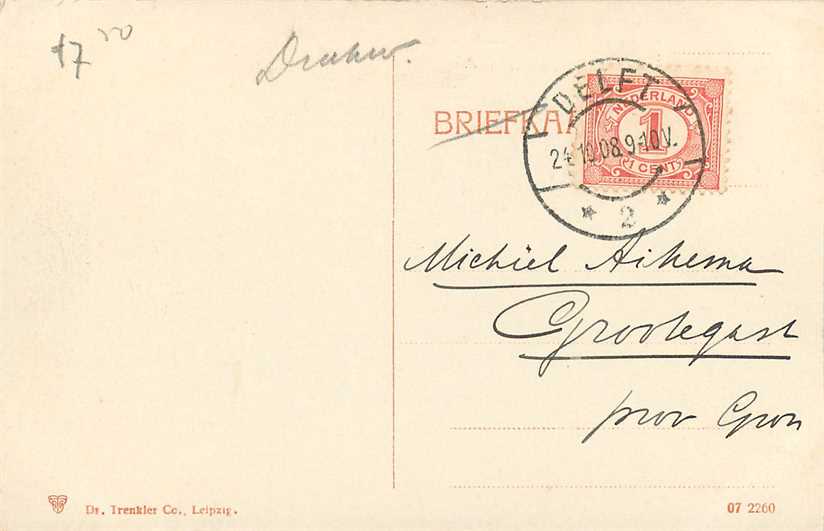 17 50
Drukw.
BRIEFKA
DELFT
24.10.08.9-10V.
2
NEDERLAND
1
1 CENT
Michiel Aikema
Grootegast
prov Gron
Dr. Trenkler Co., Leipzig.
07 2260